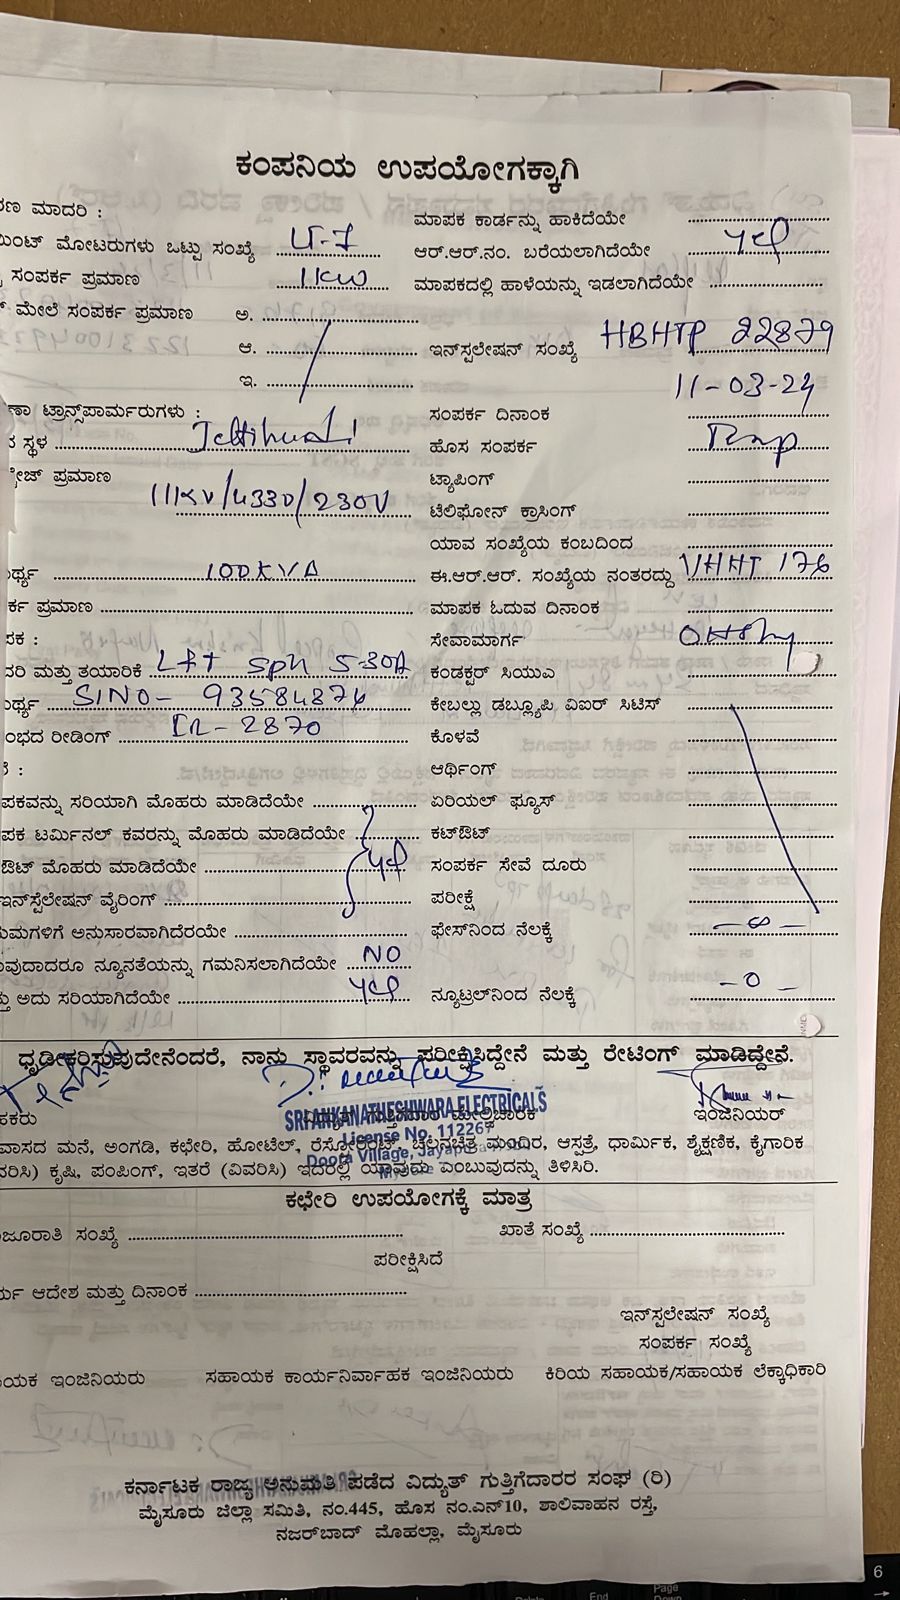 ಕಂಪನಿಯ ಉಪಯೋಗಕ್ಕಾಗಿ
ರಣ ಮಾದರಿ :
ಮಾಪಕ ಕಾರ್ಡನ್ನು ಹಾಕಿದೆಯೇ
ಯಿಂಟ್ ಮೋಟರುಗಳು ಒಟ್ಟು ಸಂಖ್ಯೆ LT-7
ಆರ್.ಆರ್.ನಂ. ಬರೆಯಲಾಗಿದೆಯೇ yes
ಸಂಪರ್ಕ ಪ್ರಮಾಣ 1KW
ಮಾಪಕದಲ್ಲಿ ಹಾಳೆಯನ್ನು ಇಡಲಾಗಿದೆಯೇ
ಮೇಲೆ ಸಂಪರ್ಕ ಪ್ರಮಾಣ ಅ.
ಆ.
ಇನ್‌ಸ್ಪಲೇಷನ್ ಸಂಖ್ಯೆ HBHTP 22879
ಇ.
11-03-24
ಣಾ ಟ್ರಾನ್ಸ್‌ಪಾರ್ಮರುಗಳು :
ಸಂಪರ್ಕ ದಿನಾಂಕ
ಸ್ಥಳ
ಹೊಸ ಸಂಪರ್ಕ
ಪ್ರಮಾಣ 11KV/433V/230V
ಟ್ಯಾಪಿಂಗ್
ಟೆಲಿಫೋನ್ ಕ್ರಾಸಿಂಗ್
ಯಾವ ಸಂಖ್ಯೆಯ ಕಂಬದಿಂದ
ರ್ಥ್ಯ 100KVA
ಈ.ಆರ್.ಆರ್. ಸಂಖ್ಯೆಯ ನಂತರದ್ದು VHHT 176
ರ್ಕ ಪ್ರಮಾಣ
ಮಾಪಕ ಓದುವ ದಿನಾಂಕ
ಪಕ :
ಸೇವಾಮಾರ್ಗ
ದರಿ ಮತ್ತು ತಯಾರಿಕೆ L&T sph 5-30A
ಕಂಡಕ್ಟರ್ ಸಿಯುವಿ
ರ್ಥ್ಯ SlNO- 93584374
ಕೇಬಲ್ಲು ಡಬ್ಲ್ಯೂಪಿ ವಿಐರ್ ಸಿಟಿಸ್
ಂಭದ ರೀಡಿಂಗ್ IR-2870
ಕೊಳವೆ
ಆರ್ಥಿಂಗ್
ಪಕವನ್ನು ಸರಿಯಾಗಿ ಮೊಹರು ಮಾಡಿದೆಯೇ
ಏರಿಯಲ್ ಫ್ಯೂಸ್
ಪಕ ಟರ್ಮಿನಲ್ ಕವರನ್ನು ಮೊಹರು ಮಾಡಿದೆಯೇ
ಕಟ್‌ಔಟ್
ಔಟ್ ಮೊಹರು ಮಾಡಿದೆಯೇ yes
ಸಂಪರ್ಕ ಸೇವೆ ದೂರು
ಇನ್‌ಸ್ಪೆಲೇಷನ್ ವೈರಿಂಗ್
ಪರೀಕ್ಷೆ
ಯಮಗಳಿಗೆ ಅನುಸಾರವಾಗಿದೆರಯೇ
ಫೇಸ್‌ನಿಂದ ನೆಲಕ್ಕೆ - ∞ -
ವುದಾದರೂ ನ್ಯೂನತೆಯನ್ನು ಗಮನಿಸಲಾಗಿದೆಯೇ NO
ಅದು ಸರಿಯಾಗಿದೆಯೇ yes
ನ್ಯೂಟ್ರಲ್‌ನಿಂದ ನೆಲಕ್ಕೆ - 0 -
ಧೃಡೀಕರಿಸುವುದೇನೆಂದರೆ, ನಾನು ಸ್ಥಾವರವನ್ನು ಪರೀಕ್ಷಿಸಿದ್ದೇನೆ ಮತ್ತು ರೇಟಿಂಗ್ ಮಾಡಿದ್ದೇನೆ.
SRI ANKANATHESHWARA ELECTRICALS
ಹಕರು ವಿದ್ಯುತ್ ಗುತ್ತಿಗೆದಾರ ಮೇಲ್ವಿಚಾರಕ ಇಂಜಿನಿಯರ್
License No. 11226
ವಾಸದ ಮನೆ, ಅಂಗಡಿ, ಕಛೇರಿ, ಹೋಟೆಲ್, ರೆಸ್ಟೋರೆಂಟ್, ಚಲನಚಿತ್ರ ಮಂದಿರ, ಆಸ್ಪತ್ರೆ, ಧಾರ್ಮಿಕ, ಶೈಕ್ಷಣಿಕ, ಕೈಗಾರಿಕ
Doora Village, Jayapura
ವರಿಸಿ) ಕೃಷಿ, ಪಂಪಿಂಗ್, ಇತರೆ (ವಿವರಿಸಿ) ಇದರಲ್ಲಿ ಯಾವುದು ಎಂಬುವುದನ್ನು ತಿಳಿಸಿರಿ.
ಕಛೇರಿ ಉಪಯೋಗಕ್ಕೆ ಮಾತ್ರ
ಜೂರಾತಿ ಸಂಖ್ಯೆ
ಖಾತೆ ಸಂಖ್ಯೆ
ಪರೀಕ್ಷಿಸಿದೆ
ರ್ಯ ಆದೇಶ ಮತ್ತು ದಿನಾಂಕ
ಇನ್‌ಸ್ಪಲೇಷನ್ ಸಂಖ್ಯೆ
ಸಂಪರ್ಕ ಸಂಖ್ಯೆ
ಯಕ ಇಂಜಿನಿಯರು ಸಹಾಯಕ ಕಾರ್ಯನಿರ್ವಾಹಕ ಇಂಜಿನಿಯರು ಕಿರಿಯ ಸಹಾಯಕ/ಸಹಾಯಕ ಲೆಕ್ಕಾಧಿಕಾರಿ
ಕರ್ನಾಟಕ ರಾಜ್ಯ ಅನುಮತಿ ಪಡೆದ ವಿದ್ಯುತ್ ಗುತ್ತಿಗೆದಾರರ ಸಂಘ (ರಿ)
ಮೈಸೂರು ಜಿಲ್ಲಾ ಸಮಿತಿ, ನಂ.445, ಹೊಸ ನಂ.ಎನ್10, ಶಾಲಿವಾಹನ ರಸ್ತೆ,
ನಜರ್‌ಬಾದ್ ಮೊಹಲ್ಲಾ, ಮೈಸೂರು
6
End
Page